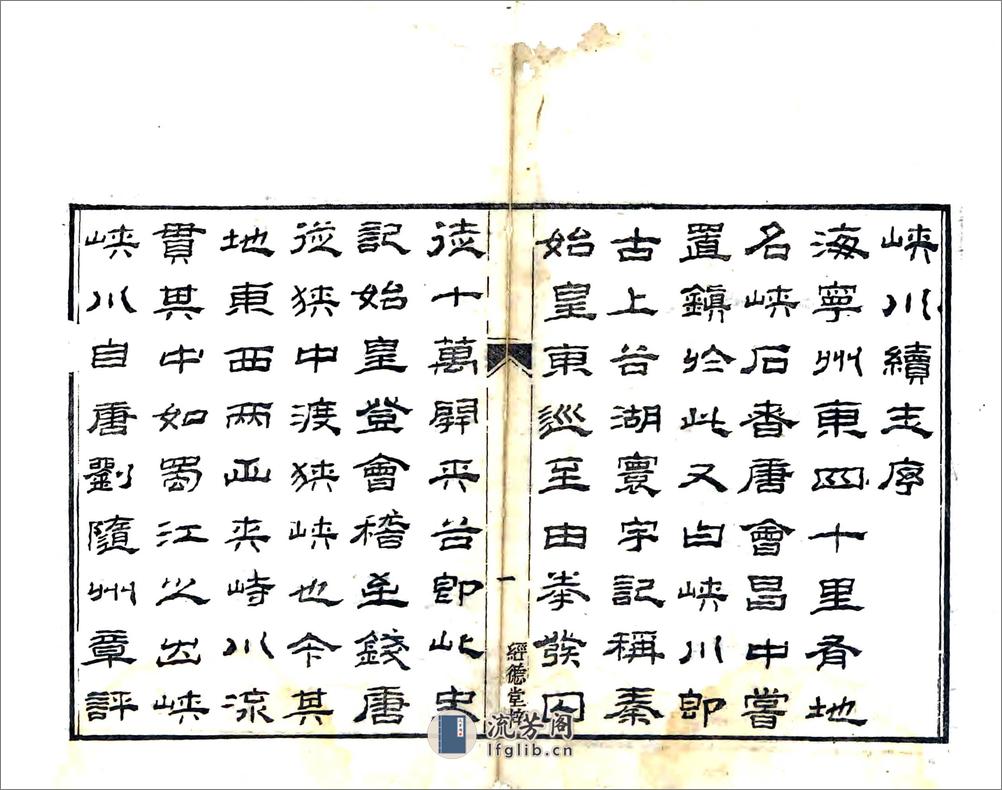 峽川續志序
海寧州東四十里有地
名峽石者唐會昌中嘗
置鎮於此又曰峽川即
古上谷湖寰宇記稱秦
始皇東巡至由拳發囚
一
經德堂
徒十萬平谷即此史
記始皇登會稽至錢唐
從狹中渡狹峽也今其
地東西兩山夾峙川流
貫其中如蜀江之出峽
峽川自唐劉隨州章評
流芳阁
lfglib.cn